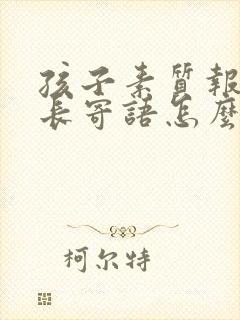 孩子素質報
長寄語怎麼
柯尔特